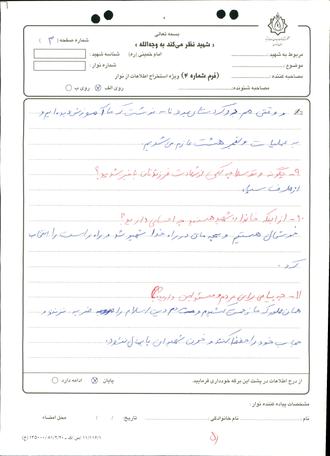 بسمه تعالی
« شهید نظر می‌کند به وجه‌الله »
شماره صفحه ( ۳ )
مربوط به شهید :
امام خمینی (ره)
شناسه شهید :
موضوع :
شماره نوار :
مصاحبه کننده :
(فرم شماره ۴) ویژه استخراج اطلاعات از نوار
مصاحبه شونده :
روی الف
روی ب
۸- و وقتی هم در کردستان بود نامه نوشت که ما
به عملیات و هشت عازم می‌شویم
۹- چگونه و توسط چه کسی از شهادت فرزندتان با خبر شدید؟
از طرف سپاه.
۱۰- از اینکه خانواده شهید هستید چه احساسی دارید؟
خوشحال هستیم و بچه‌مان در راه خدا شهید شد و راه راست را انتخاب
کرد.
۱۱- چه پیامی برای مردم و مسئولین دارید؟
همان طور که ما دین اسلام را
حجاب خود را حفظ کنند و خون شهدا را پایمال نشود.
از درج اطلاعات در پشت این برگه خودداری فرمایید.
ادامه دارد
پایان
مشخصات پیاده کننده نوار
نام :
نام خانوادگی :
تاریخ :
محل امضاء